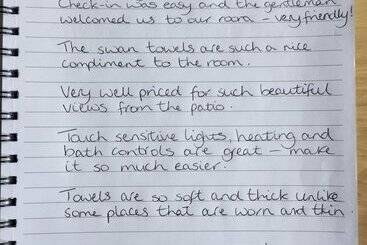 Check-in was easy and the gentleman
welcomed us to our room – very friendly!
The swan towels are such a nice
compliment to the room.
Very well priced for such beautiful
views from the patio.
Touch sensitive lights, heating and
bath controls are great – make
it so much easier.
Towels are so soft and thick unlike
some places that are worn and thin.